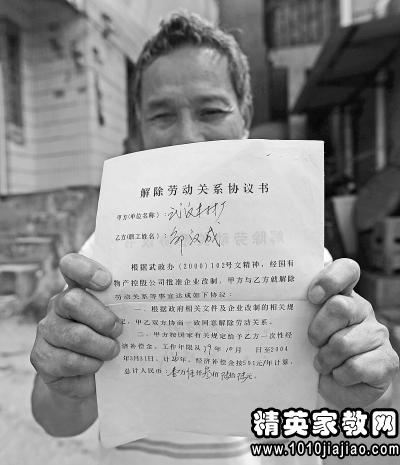 解除劳动关系协议书
甲方(单位名称):
乙方(职工姓名): 邹汉成
根据武政办(2000)102号文精神,经国有
物产控股公司批准企业改制,甲方与乙方就解除
劳动关系等事宜达成如下协议:
一、根据政府相关文件及企业改制的相关规
定,甲乙双方协商一致同意解除劳动关系。
二、甲方按国家有关规定给予乙方一次性经
济补偿金,工作年限从79年10月 日至2004
年3月31日,计 年,经济补偿金按501元/年计算,
总计人民币:
精英家教网
www.1010jiajiao.com